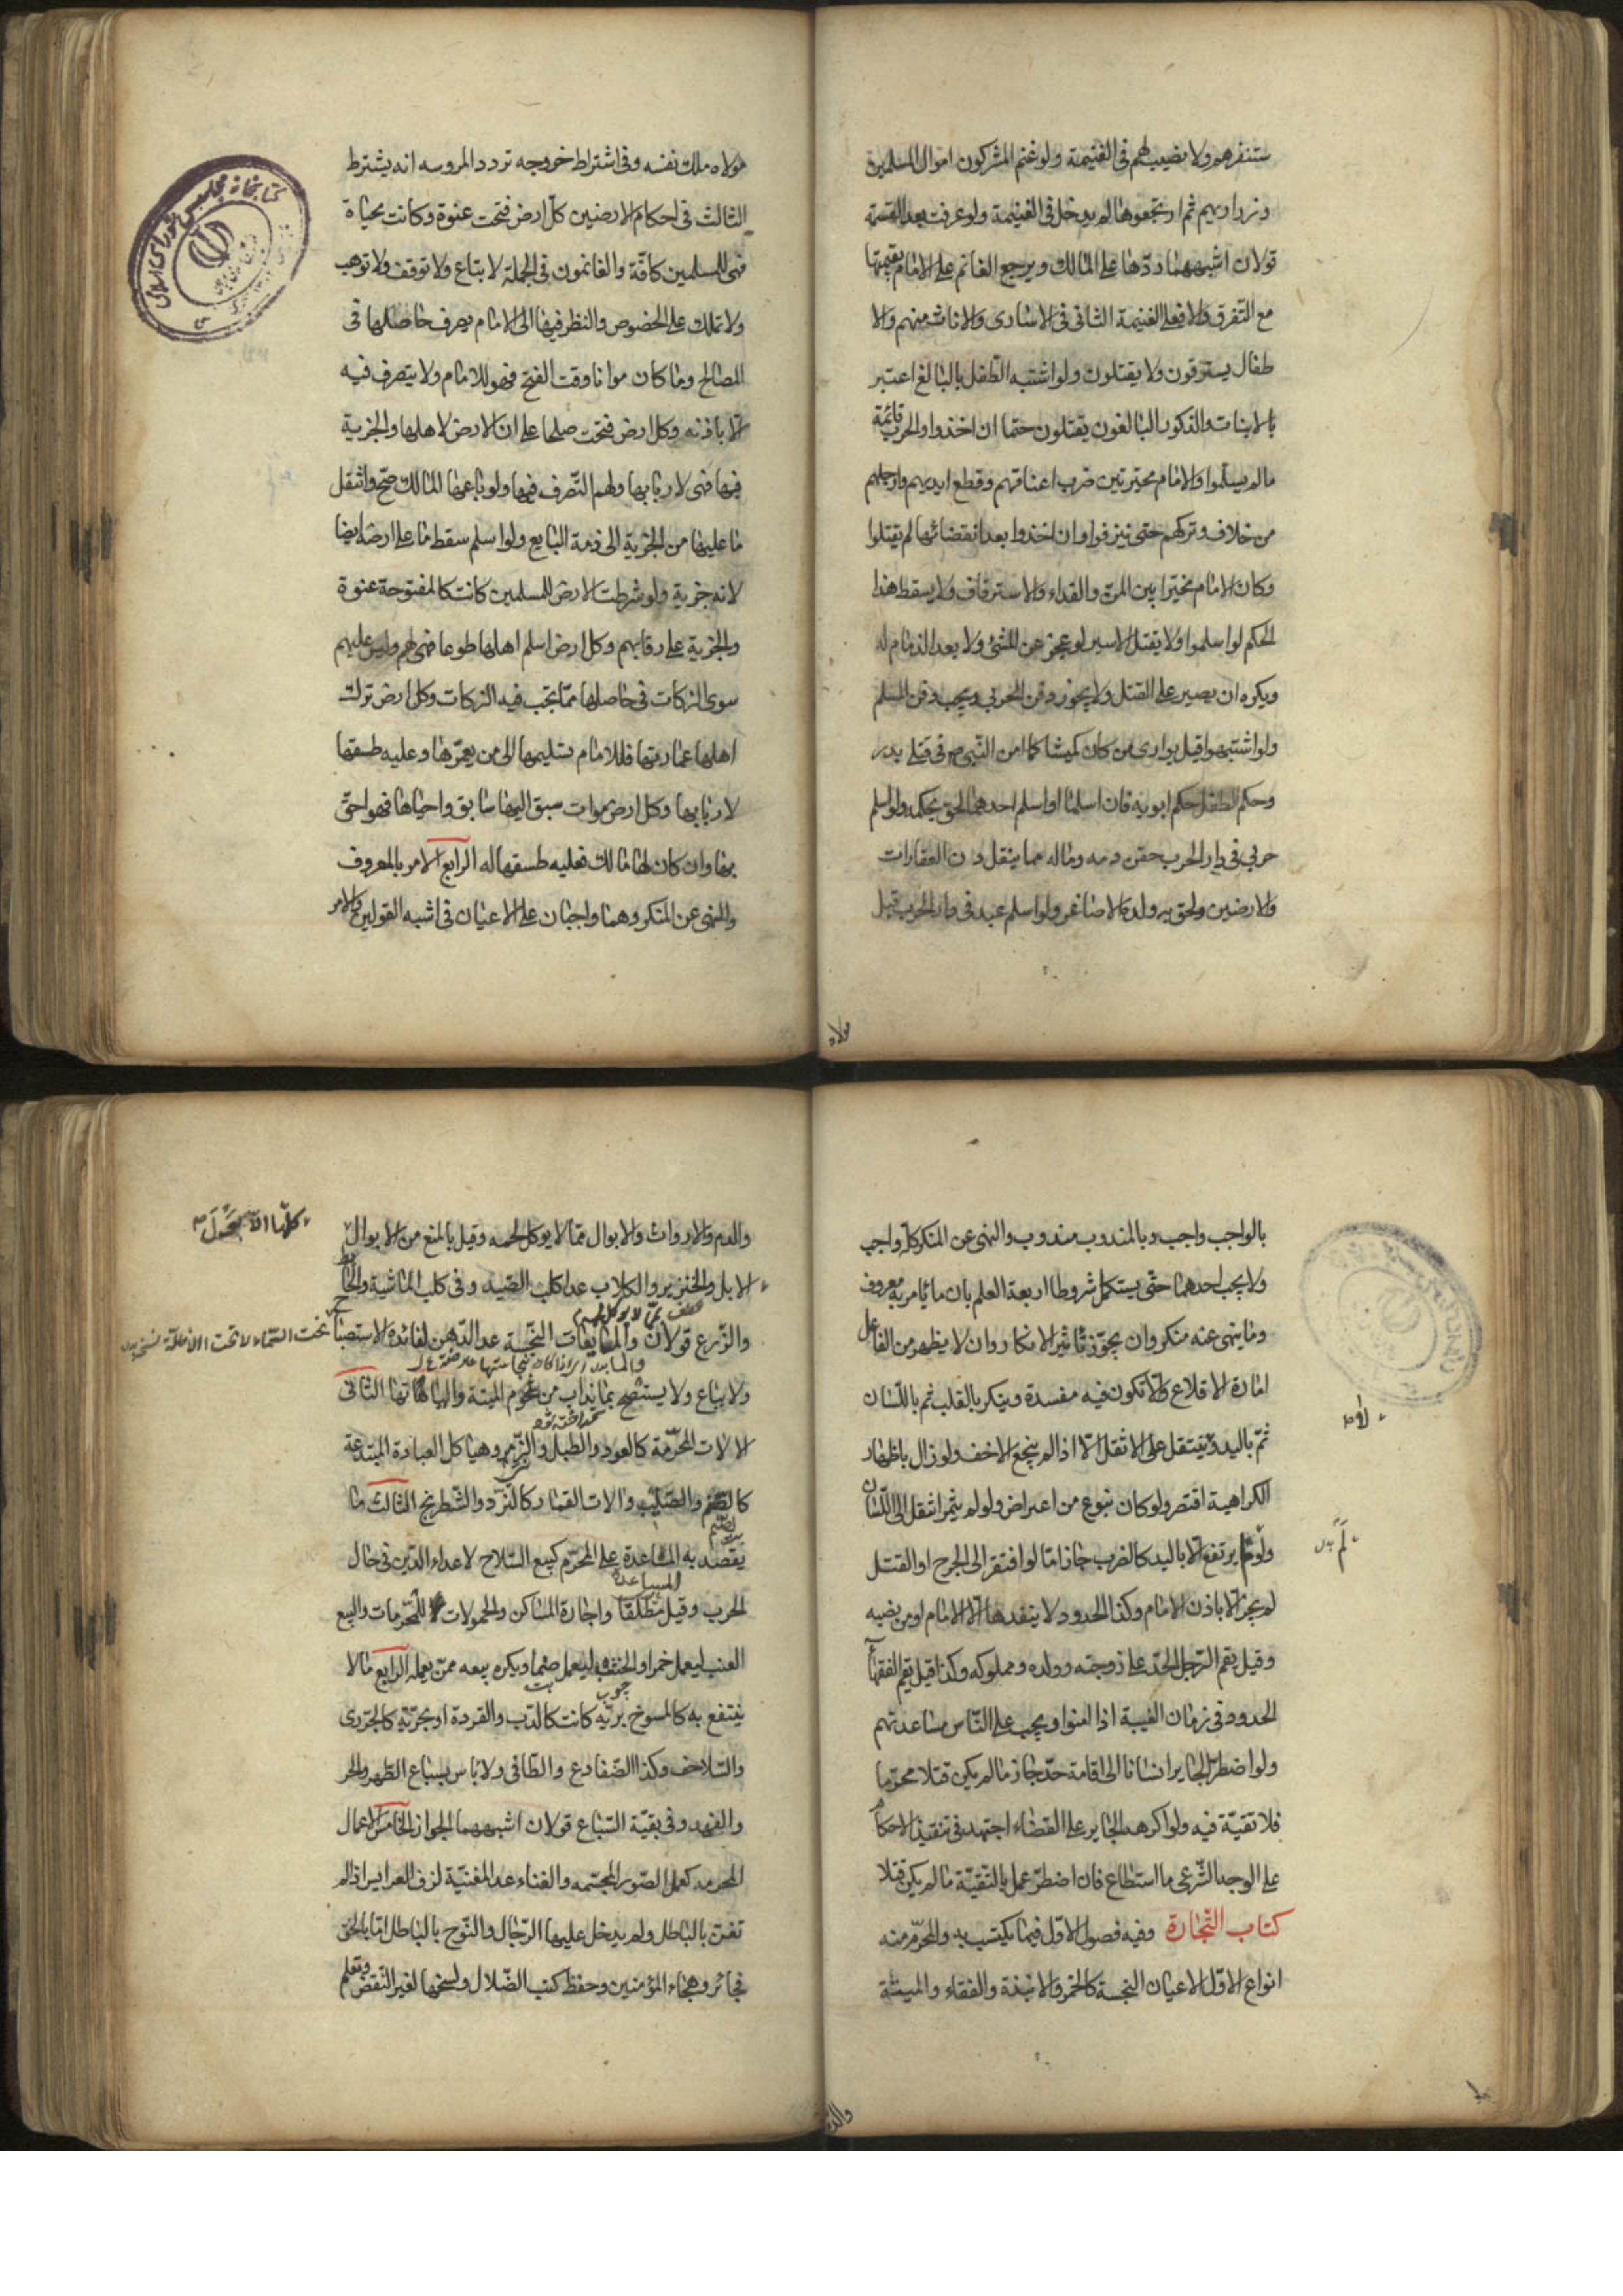 ستنفرهم ولا نصيب لهم فى الغنيمة ولو غنم المشركون اموال المسلمين
وذراريهم ثم ارتجعوها لم يدخل فى الغنيمة ولو عرفت بعد القسمة
قولان اشبههما ردّها على المالك ويرجع الغانم على الامام بقيمتها
مع التفرق والا فعلى الغنيمة الثانى فى الاسارى والاناث منهم والا
طفال يسترقون ولا يقتلون ولو اشتبه الطفل بالبالغ اعتبر
بالانبات والذكور البالغون يقتلون حتما ان اخذوا والحرب قائمة
مالم يسلموا والامام مخير بين ضرب اعناقهم وقطع ايديهم وارجلهم
من خلاف وتركهم حتى ينزفوا وان اخذوا بعد انقضائها لم يقتلوا
وكان الامام مخيرا بين المن والفداء والاسترقاق ولا يسقط هذا
الحكم لو اسلموا ولا يقتل الاسير لو عجز عن المشى ولا بعد الذمام له
ويكره ان يصبر على القتل ولا يجوز دفن الحربي ويجب دفن المسلم
ولو اشتبهوا قيل يوارى من كان كميشا كما امر النبي ص فى قتلى بدر
وحكم الطفل حكم ابويه فان اسلما او اسلم احدهما لحق بحكمه ولو اسلم
حربي فى دار الحرب حقن دمه وماله مما ينقل دون العقارات
والارضين ولحق به ولده الاصاغر ولو اسلم عبد فى دار الحرب قبل
مولاه
مولاه ملك نفسه وفى اشتراط خروجه تردد المروى انه يشترط
الثالث فى احكام الارضين كل ارض فتحت عنوة وكانت محياة
فهى للمسلمين كافّة والغانمون فى الجملة لا تباع ولا توقف ولا توهب
ولا تملك على الخصوص والنظر فيها الى الامام يصرف حاصلها فى
المصالح وما كان مواتا وقت الفتح فهو للامام ولا يتصرف فيه
الا باذنه وكل ارض فتحت صلحا على ان الارض لاهلها والجزية
فيها فهى لاربابها ولهم التصرف فيها ولو باعها المالك صح وانتقل
ما عليها من الجزية الى ذمة البايع ولو اسلم سقط ما على ارضه ايضا
لانه جزية ولو شرطت الارض للمسلمين كانت كالمفتوحة عنوة
والجزية على رقابهم وكل ارض اسلم اهلها طوعا فهى لهم وليس عليهم
سوى الزكات فى حاصلها ممّا تجب فيه الزكات وكل ارض ترك
اهلها عمارتها فللامام تسليمها الى من يعمّرها وعليه طسقها
لاربابها وكل ارض موات سبق اليها سابق واحياها فهو احق
بها وان كان لها مالك فعليه طسقها له الرابع الامر بالمعروف
والنهى عن المنكر وهما واجبان على الاعيان فى اشبه القولين والامر
كتابخانه مجلس شوراى اسلامى
بالواجب واجب وبالمندوب مندوب والنهى عن المنكر كله واجب
ولا يجب احدهما حتّى يستكمل شروطا اربعة العلم بان ما يامر به معروف
وما ينهى عنه منكر وان يجوّز تاثير الانكار وان لا يظهر من الفاعل
امارة الاقلاع والّا تكون فيه مفسدة وينكر بالقلب ثم باللّسان
ثمّ باليد ولا ينتقل على الاثقل الّا اذا لم ينجع الاخف ولو زال باظهار
الكراهية اقتصر ولو كان بنوع من اعراض ولو لم يثمر انتقل الى اللّسان
ولو لم يرتفع الا باليد كالضرب جاز امّا لو افتقر الى الجرح او القتل
لم يجز الا باذن الامام وكذا الحدود لا ينفدها الا الامام او من نصبه
وقيل يقم الرّجل الحدّ على زوجته وولده ومملوكه وكذا قيل يقم الفقهاء
الحدود فى زمان الغيبة اذا امنوا ويجب على النّاس مساعدتهم
ولو اضطر الجاير انسانا الى اقامة حدّ جاز مالم يكن قتلا محرّما
فلا تقيّة فيه ولو اكرهه الجاير على القضاء اجتهد فى تنفيذ الاحكام
على الوجه الشّرعى ما استطاع فان اضطرّ عمل بالتقيّة مالم يكن قتلا
كتاب التّجارة وفيه فصول الاوّل فيما يكتسب به والمحرّم منه
انواع الاوّل الاعيان النجسة كالخمر والانبذة والفقاع والميتة
والدم
والدم والارواث والابوال ممّا لا يوكل لحمه وقيل بالمنع من الابوال
كلّها الا بول
الابل والخنزير والكلاب عدا كلب الصّيد وفى كلب الماشية والحائط
والزّرع قولان والمايعات النجسة عدا الدّهن لفائدة الاستصباح
تحت السّماء لا تحت الاظلّة
ولا يباع ولا يستصبح بما يذاب من شحوم الميتة والياتها الثانى
الالات المحرّمة كالعود والطبل والزّمر وهياكل العبادة المبتدعة
كالصّنم والصّليب والات القمار كالنرد والشّطرنج الثالث ما
يقصد به المساعدة على المحرّم كبيع السّلاح لاعداء الدّين فى حال
الحرب وقيل مطلقا واجارة المساكن والحمولات للمحرّمات وبيع
العنب ليعمل خمرا والخشب ليعمل صنما ويكره بيعه ممّن يعمله الرابع مالا
ينتفع به كالمسوخ بريّة كانت كالدّب والقردة او بحريّة كالجرّى
والسّلاحف وكذا الضّفادع والطّافى ولا باس بسباع الطّير والهر
والفهد وفى بقيّة السّباع قولان اشبههما الجواز الخامس الاعمال
المحرمه كعمل الصّور المجسّمه والغناء عدا المغنيّة لزف العرايس اذا لم
تغن بالباطل ولم يدخل عليها الرّجال والنّوح بالباطل امّا بالحق
فجائز وهجاء المؤمنين وحفظ كتب الضّلال ونسخها لغير النّقض وتعلم